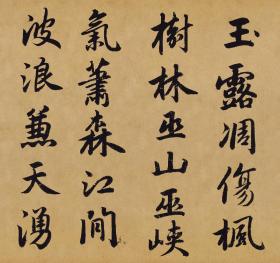 玉露凋傷楓
樹林巫山巫峽
氣蕭森江間
波浪蒹天湧